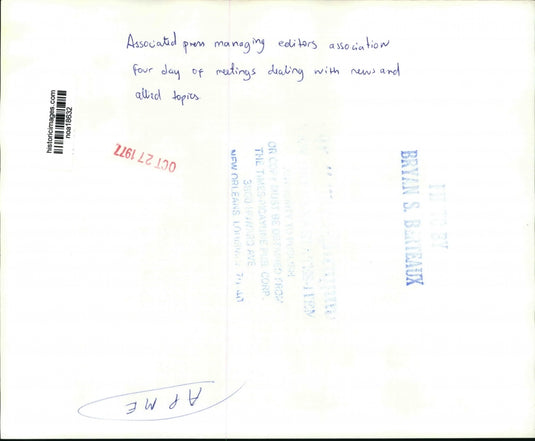 Associated press managing editors association
four day of meetings dealing with news and
allied topics
historicimages.com
noa18632
OCT 27 1977
PHOTO BY
BRYAN S. BERTEAUX
OR COPY MUST BE OBTAINED FROM
THE TIMES-PICAYUNE PUB. CORP.
3800 HOWARD AVE
NEW ORLEANS,
APME